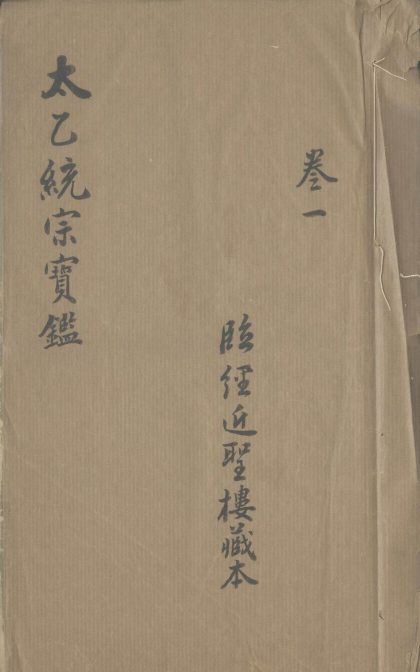 卷一
臨經近聖樓藏本
太乙統宗寶鑑